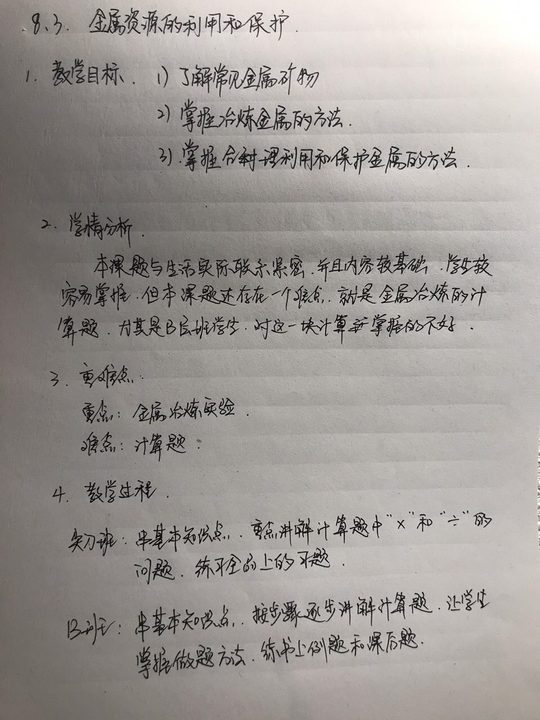 8.3. 金属资源的利用和保护.
1. 教学目标. 1) 了解常见金属矿物
2) 掌握冶炼金属的方法.
3). 掌握合理利用和保护金属的方法.
2. 学情分析.
本课题与生活实际联系紧密, 并且内容较基础, 学生较
容易掌握, 但本课题还存在一个难点, 就是金属冶炼的计
算题, 尤其是B层班学生, 对这一块计算掌握的不好.
3. 重难点:
重点: 金属冶炼实验.
难点: 计算题.
4. 教学过程.
实习班: 串基本知识点, 重点讲解计算题中"×"和"÷"的
问题, 练习全品上的习题.
B班: 串基本知识点, 按步骤逐步讲解计算题, 让学生
掌握做题方法, 练书上例题和课后题.